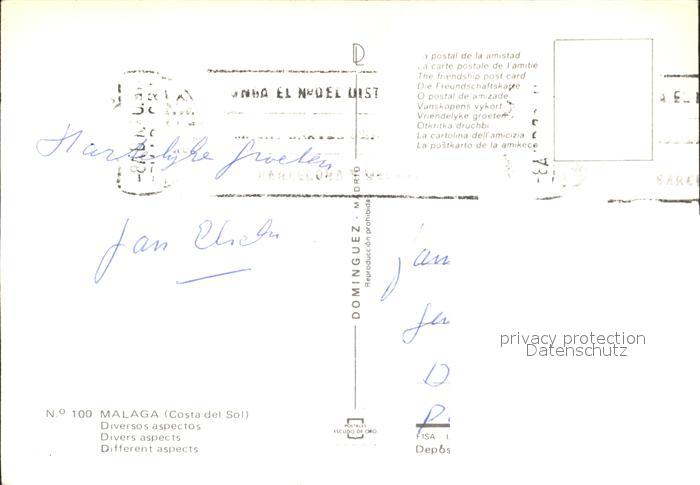 La postal de la amistad
La carte postale de l'amitie
The friendship post card
Die Freundschaftskarte
O postal de amizade
Vanskopens vykort
Vriendelyke groeten
Otkritka druchbi
La cartolina dell'amicizia
La poŝtkarto de la amikeco
EL Nº DEL DIST
BARCELONA
Hartelijke groeten
Jan
Jan
DOMINGUEZ - MADRID
Reproducción prohibida
privacy protection
Datenschutz
N.º 100 MALAGA (Costa del Sol)
Diversos aspectos
Divers aspects
Different aspects
POSTALES
ESCUDO DE ORO
FISA
Depós